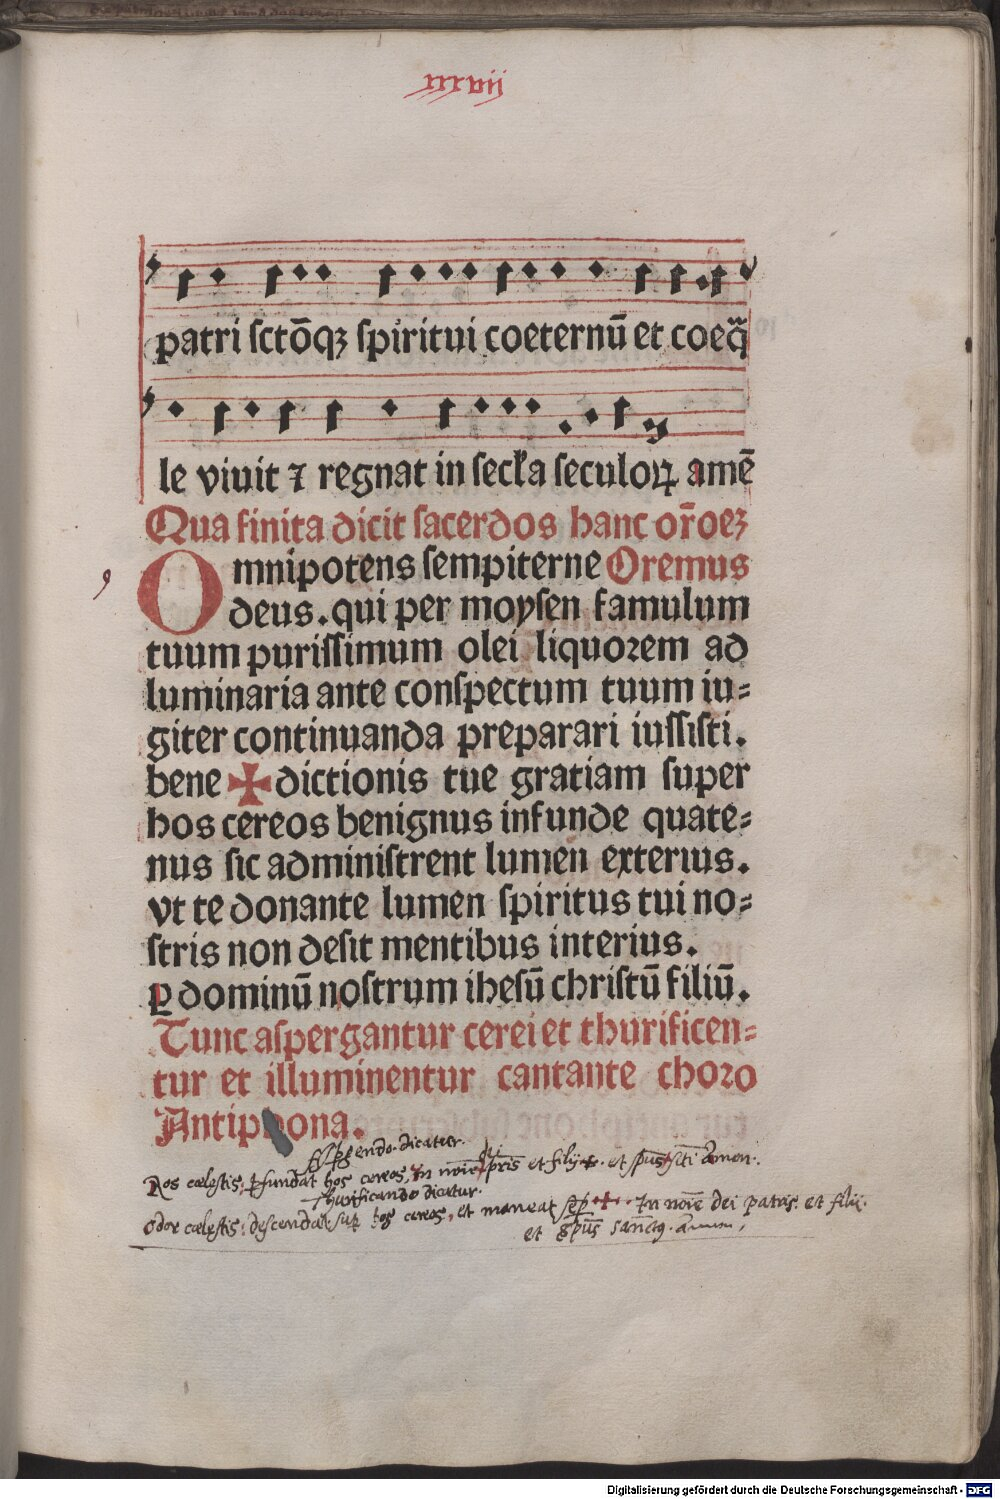 xxxvii
patri sctōqꝫ spiritui coeternū et coeq̄
le viuit ⁊ regnat in secl̄a seculoꝝ amē
Qua finita dicit sacerdos hanc or̄oeꝫ
Omnipotens sempiterne Oremus
deus. qui per moysen famulum
tuum purissimum olei liquorem ad
luminaria ante conspectum tuum iu-
giter continuanda preparari iussisti.
bene ✠ dictionis tue gratiam super
hos cereos benignus infunde quate-
nus sic administrent lumen exterius.
vt te donante lumen spiritus tui no-
stris non desit mentibus interius.
ꝑ dominū nostrum ihesū christū filiū.
Tunc aspergantur cerei et thurificen-
tur et illuminentur cantante choro
Antiphona.
dicatur.
Ros cælestis, ꝑfundat hos cereos, In noīe pr̄is et filij ✠ et sp̄us sc̄ti Amen.
Thurificando dicatur.
Odor cælestis: descendat sup̱ hos cereos, et maneat sēp ✠ In noīe dei patris. et filij.
et sp̄us sanctꝰ. Amen.
Digitalisierung gefördert durch die Deutsche Forschungsgemeinschaft - DFG